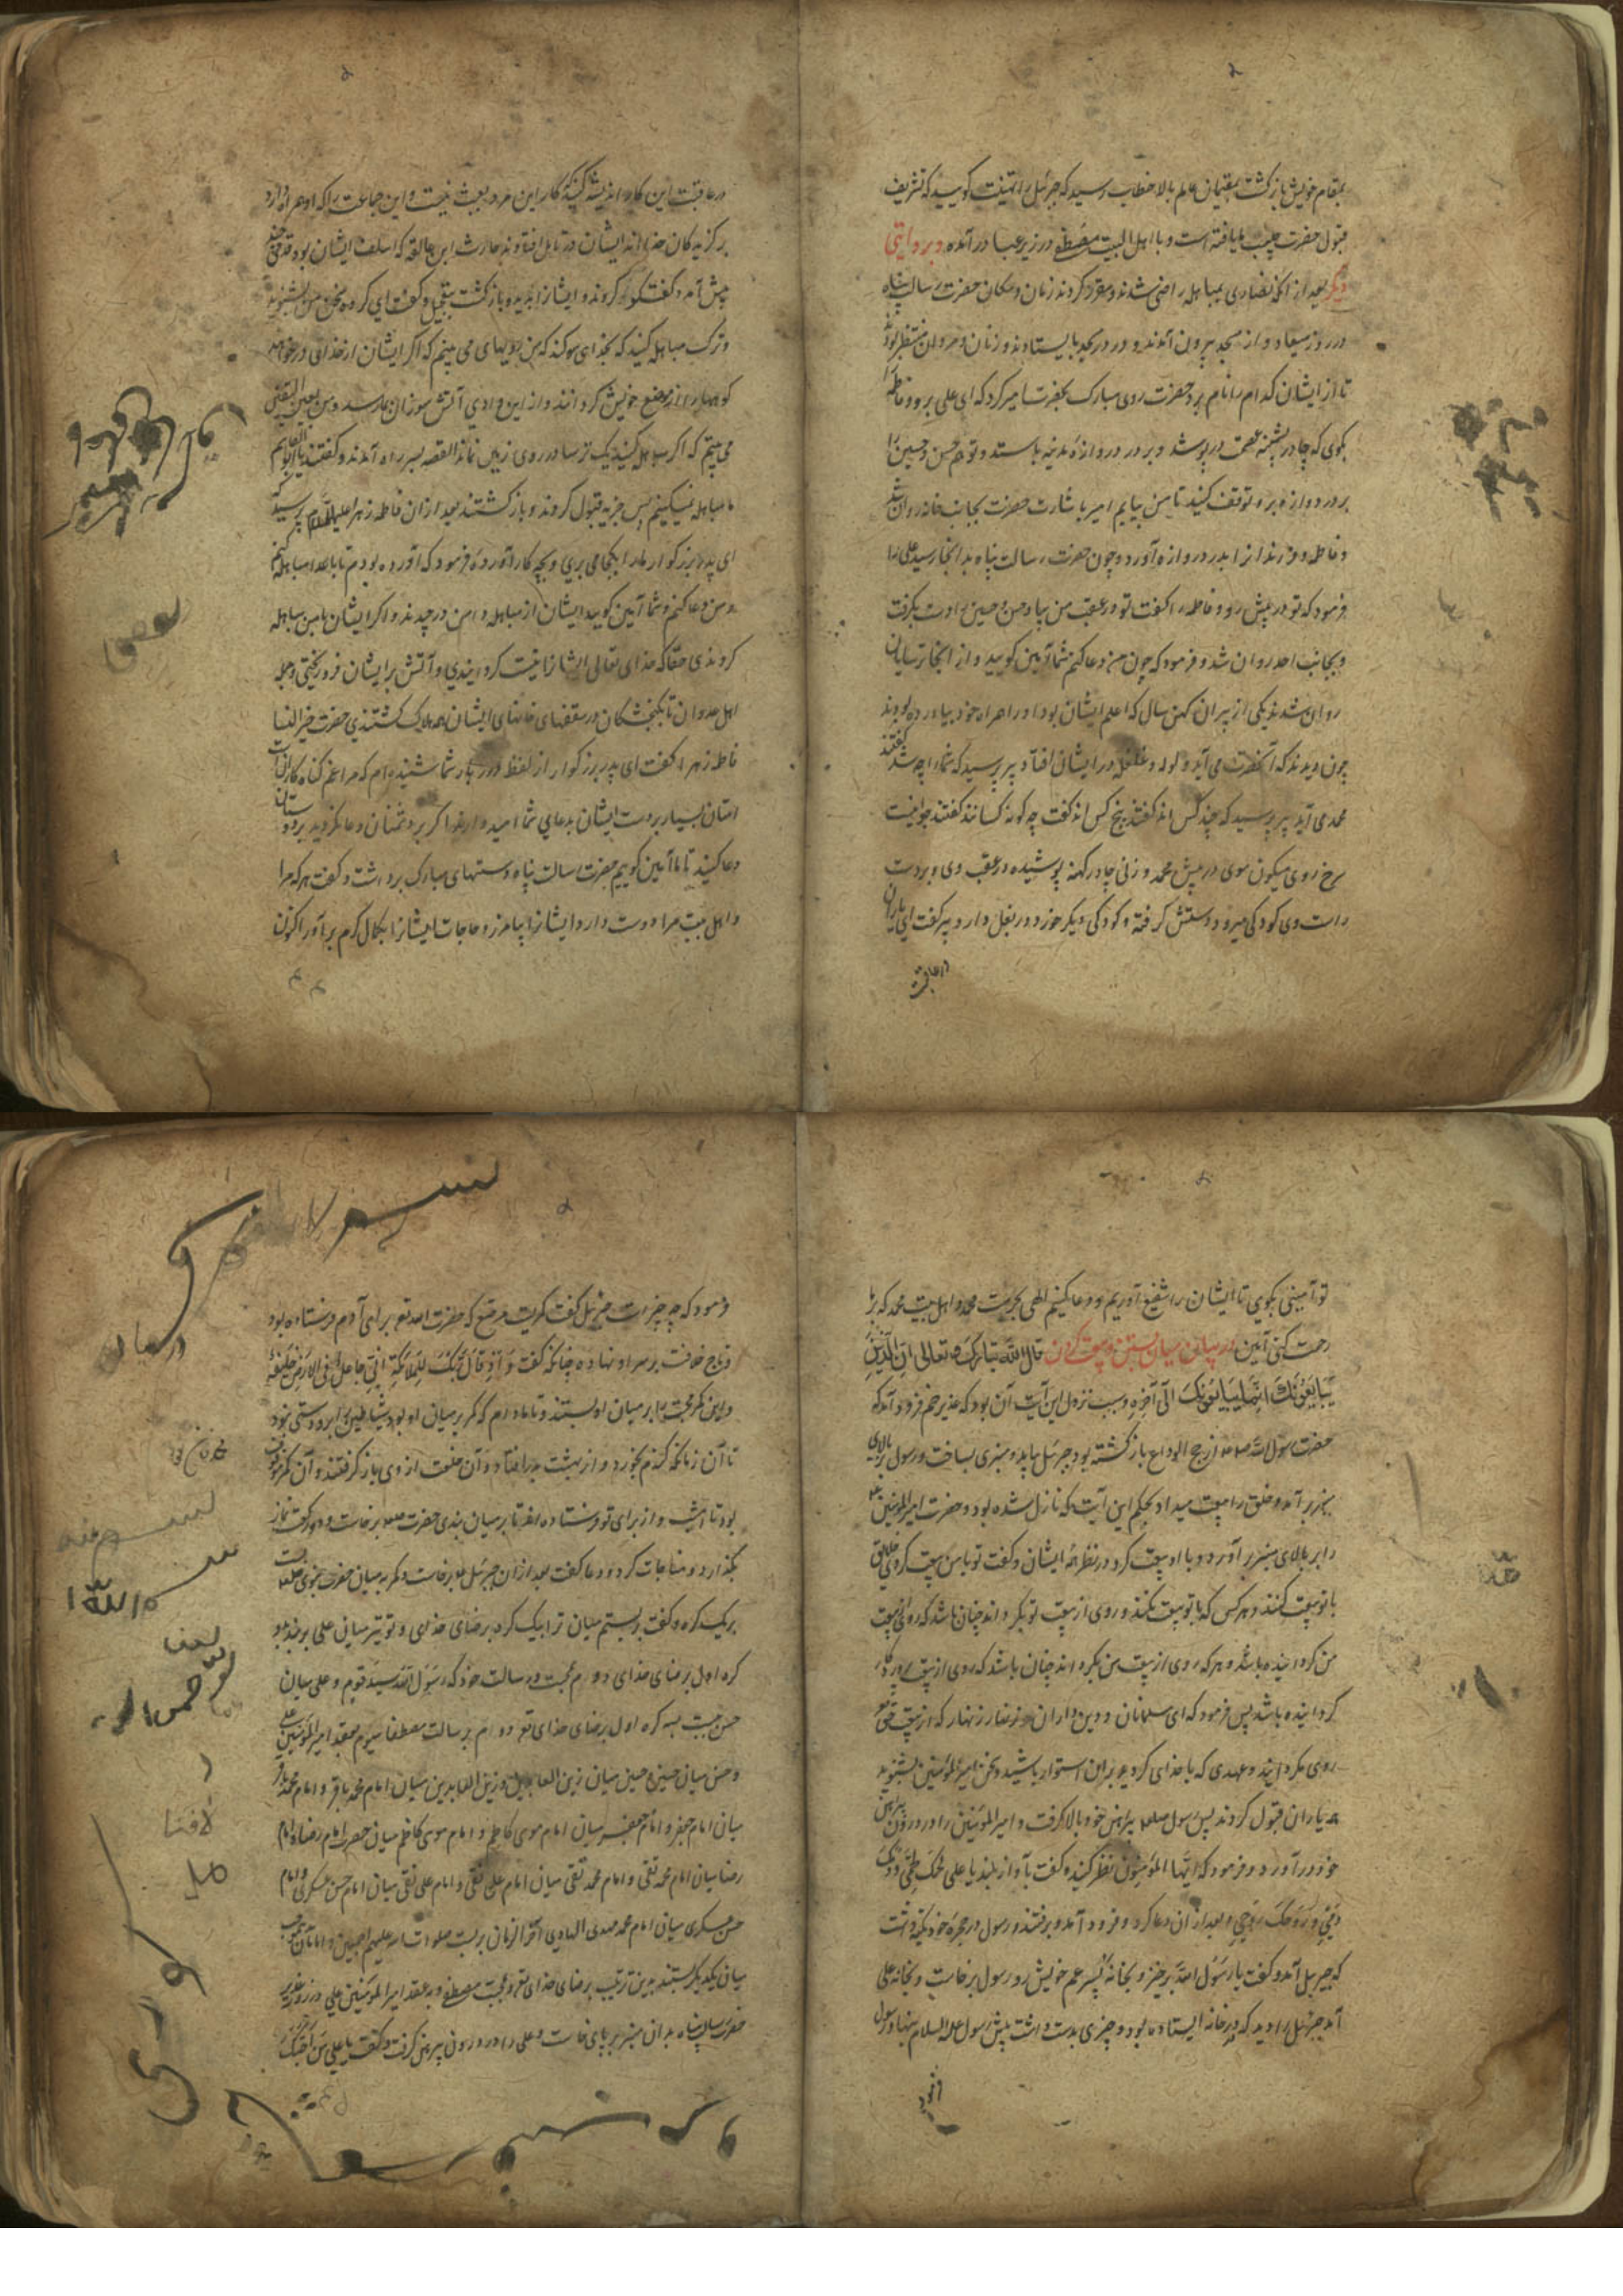 بمقام خویش بازگشت بمقیمان عالم بالا خطاب رسید که جبرئیل را تهنیت گویید که تشریف
قبول حضرت حبیب ما یافته است و با اهل البیت مصطفی در زیر عبا در آمده و بروایتی
دیگر بعد از آنکه نصاری بمباهله راضی شدند و مقرر کردند زمان و مکان حضرت رسالت پناه
در روز میعاد از مسجد بیرون آمدند و در در مسجد بایستادند و زنان و مردان منتظر بودند
تا از ایشان کدام را نام برد حضرت روی مبارک بحضرت امیر کرد که ای علی برو و فاطمه را
بگوی که چادر پشمینه عصمت در پوشد و بر در دروازه مدینه بایستد و تو هم حسن و حسین را
بر در دروازه برو توقف کنید تا من بیایم امیر باشارت حضرت بجانب خانه روان شد
و فاطمه و فرزندان را بدر دروازه آورد و چون حضرت رسالت پناه بدانجا رسید علی را
فرمود که تو در پیش رو و فاطمه را گفت تو در عقب من بیا و حسن و حسین را دست بگرفت
و بجانب احد روان شد و فرمود که چون من دعا کنم شما آمین گویید و از آنجا ترسایان
روان شدند یکی از پیران کهن سال که اعلم ایشان بود او را همراه خود بیاورده بودند
چون دیدند که آنحضرت می آید ولوله و غلغله در ایشان افتاد پیر پرسید که شما را چه شد گفتند
محمد می آید پیر پرسید که چند کس اند گفتند پنج کس اند گفت چه گونه کسانند گفتند جوانیست
سرخ روی میگون موی در پیش محمد و زنی چادر کهنه پوشیده در عقب وی و بر دست
راست وی کودکی میرود دستش گرفته و کودکی دیگر خورد در بغل دارد پیر گفت ای یاران
در عاقبت این کار اندیشه کنید کار این مرد بعبث نیست و این جماعت را که او همراه دارد
برگزیدگان خدا اند ایشان در تأمل افتادند حارث ابن عالقه که اسلف ایشان بود قدمی چند
پیش آمد و گفت گوی کردند و ایشان را بدید و بازگشت بتعجیل و گفت ای گروه سخن من بشنوید
و ترک مباهله کنید که بخدای سوگند که من رویهای می بینم که اگر ایشان از خدای در خواهند
کوهها را از موضع خویش گردانند و از این وادی آتش سوزان بما رسد و من بعین الیقین
می بینم که اگر مباهله کنید یک ترسا در روی زمین نماند القصه بسر راه آمدند و گفتند یا ابا القاسم
ما مباهله نمیکنیم پس جزیه قبول کردند و بازگشتند بعد از آن فاطمه زهرا علیها السلام پرسید که
ای پدر بزرگوار ما را بکجا می بری و بچه کار آورده فرمود که آورده بودم تا با اعدا مباهله کنم
و من دعا کنم و شما آمین گویید ایشان از مباهله دامن در چیدند و اگر ایشان با من مباهله
کردندی حقا که خدای تعالی ایشان را نیست گردانیدی و آتش بر ایشان فرو ریختی و جمله
اهل عدوان تا گنجشکان در سقفهای خانهای ایشان همه هلاک گشتندی حضرت خیر النسا
فاطمه زهرا گفت ای پدر بزرگوار از لفظ درر بار شما شنیده ام که مرا غم گناه کاران
امتان بسیارست ایشان بدعای شما امیدوارند اگر بر دشمنان دعا نکردید بر دوستان
دعا کنید تا ما آمین گویم حضرت رسالت پناه دستهای مبارک برداشت و گفت هر که مرا
و اهل بیت مرا دوست دارد ایشان را بیامرز و حاجات ایشان را بکمال کرم برآور اکنون
تو آمینی بگوی تا ایشان را شفیع آوریم و دعا کنیم الهی بحرمت محمد و اهل بیت محمد که بر ما
رحمت کنی آمین در بیان میان بستن و بیعت کردن قال الله تبارک و تعالی ان الذین
یبایعونک انما یبایعونک الی آخره و سبب نزول این آیت آن بود که غدیر خم فرود آمد که
حضرت رسول الله صلعم از حج الوداع بازگشته بود جبرئیل بیامد و منبری بساخت و رسول بالای
منبر بر آمد و خلق را بیعت میداد بحکم این آیت که نازل شده بود و حضرت امیرالمومنین
را بر بالای منبر بر آورد و با او بیعت کرد در نظر همه ایشان و گفت تو با من بیعت کردی خلایق
با تو بیعت کنند و هر کس که با تو بیعت نکند و روی از بیعت تو بگرداند چنان باشد که روی از بیعت
من گردانیده باشد و هر که روی از بیعت من بگرداند چنان باشد که روی از بیعت پروردگار
گردانیده باشد پس فرمود که ای مسلمانان و دین داران زنهار زنهار که از بیعت حق
روی مگردانید و عهدی که با خدای کردید بر آن استوار باشید و سخن امیرالمؤمنین بشنوید
همه یاران قبول کردند پس رسول صلعم پیراهن خود بالا گرفت و امیرالمؤمنین را در درون پیراهن
خود در آورد و فرمود که ایها المؤمنون نظر کنید و گفت بآواز بلند یا علی لحمک لحمی و دمک
دمی و روحک روحی و بعد از آن دعا کرد و فرود آمد و برفتند و رسول در حجره خود تکیه داشت
که جبرئیل آمد و گفت یا رسول الله برخیز و بخانه پسر عم خویش رو رسول برخاست و بخانه علی
آمد جبرئیل را دید که در خانه ایستاده بود و چیزی بدست داشت پیش رسول علیه السلام بنهاد رسول
فرمود که چه چیزست جبرئیل گفت کمریست مرصع که حضرت الله تع برای آدم فرستاده بود
و تاج خلافت بر سر او نهاده چنانکه گفت و اذ قال ربک للملائکة انی جاعل فی الارض خلیفة
و این کمر محبت را بر میان او بستند و تا مادام که کمر بر میان او بود شیاطین را بر او دستی نبود
تا آن زمانکه گندم بخورد و از بهشت بدر افتاد و آن خلعت از وی باز گرفتند و آن کمر
بود تا امشب و از برای تو فرستاده اند تا بر میان بندی حضرت صلعم برخاست و دو رکعت نماز
بگذارد و مناجات کرد و دعا گفت بعد از آن جبرئیل برخاست و کمر بمیان حضرت نبوی صلعم بست
بر یک گره و گفت بربستم میان ترا بیک گره برضای خدای و تو نیز میان علی بربند بدو
گره اول برضای خدای دوم محبت و رسالت خود که رسول الله سید قوم و علی میان
حسن ببست بسه گره اول برضای خدای تع دوم برسالت مصطفا سیوم بعقد امیرالمؤمنین علی
و حسن میان حسین و حسین میان زین العابدین و زین العابدین میان امام محمد باقر و امام محمد باقر
میان امام جعفر و امام جعفر میان امام موسی کاظم و امام موسی کاظم میان حضرت امام رضا و امام
رضا میان امام محمد تقی و امام محمد تقی میان امام علی نقی و امام علی نقی میان امام حسن عسکری و امام
حسن عسکری میان امام محمد مهدی الهادی آخر الزمان بربست صلوات الله علیهم اجمعین و امامان
میان یکدیگر بستند بدین ترتیب برضای خدای تع و محبت مصطفی و به عقد امیرالمؤمنین علی در روز غدیر
حضرت رسالت پناه بدان منبر بر پای خاست و علی را در درون پیرهن گرفت و گفت یا علی من احبک